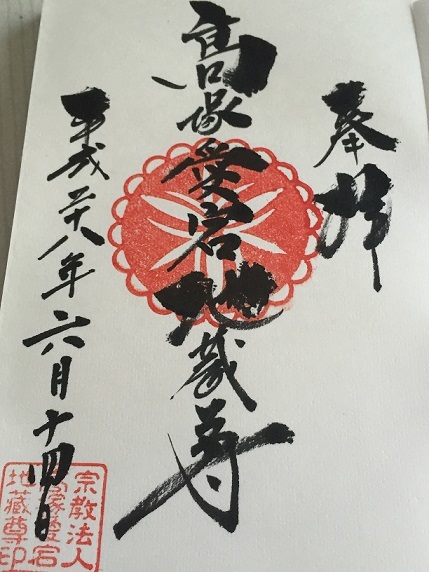 奉拝
高塚愛宕地蔵尊
平成廿八年六月十四日
宗教法人
高塚愛宕
地蔵尊印